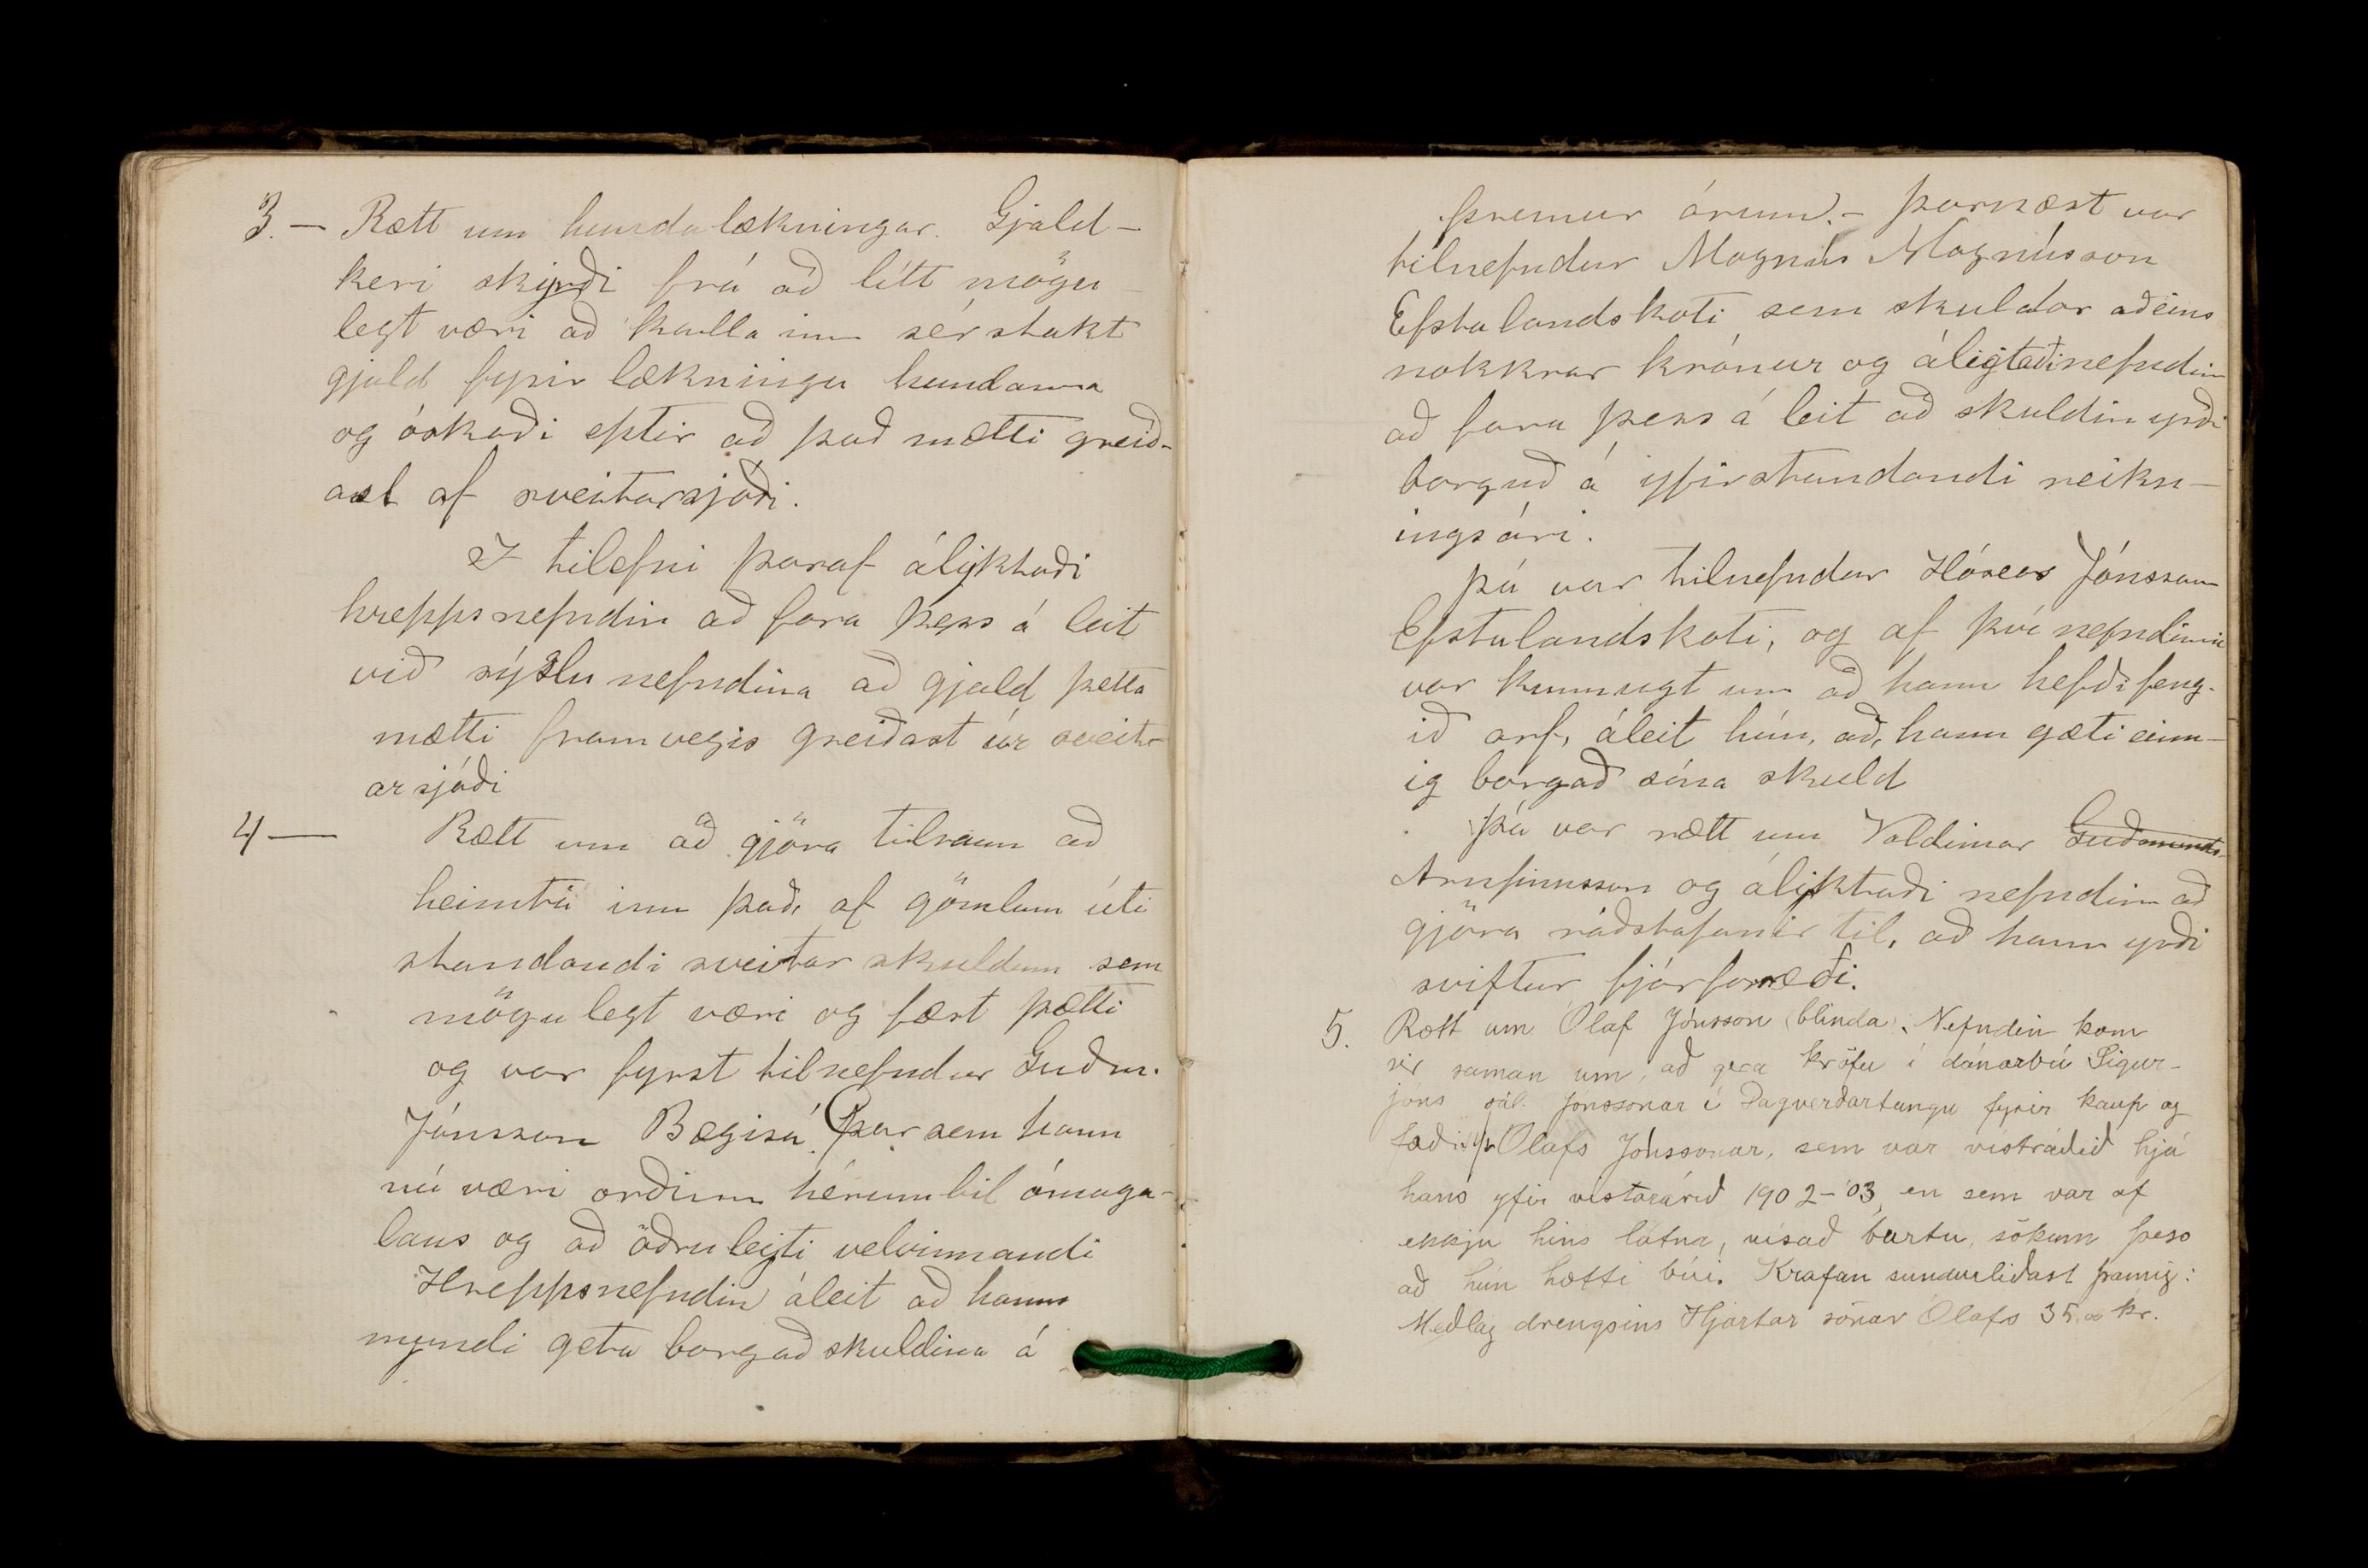 3. — Rætt um hundalækningar. Gjald-
keri skýrði frá að lítt mögu-
legt væri að kalla inn sérstakt
gjald fyrir lækningu hundanna
og óskaði eptir að það mætti greið-
ast af sveitarsjóði.
I tilefni þarafályktaði
hreppsnefndin að fara þess á leit
við sýslunefndina að gjald þetta
mætti framvegis greiðast úr sveit-
arsjóði
4 — Rætt um að gjöra tilraun að
heimta inn það, af gömlum úti
standandi sveitar skuldum sem
mögulegt væri og fært þætti
og var fyrst tilnefndur Guðm.
Jónsson Bægisá. Þar sem hann
nú væri orðinn hérumbil ómaga-
laus og að öðruleyti velvinnandi
Hreppsnefndin áleit að hann
myndi geta borgað skuldina á
þremur árum. - Þarnæst var
tilnefndur Magnús Magnússon
Efstalandskoti sem skuldar aðeins
nokkrar krónur og áligtaði nefndin
að fara þess á leit að skuldin yrði
borguð á yfirstandandi reikn-
ingsári.
Þá var tilnefndur Hóseas Jónsson
Efstalandskoti, og af því nefndinni
var kunnugt um að hann hefði feng-
ið arf, áleit hún, að, hann gæti einn-
ig borgað sína skuld
Þá var rætt um Valdimar Guðmunds-
Arnfinnsson ogályktaði nefndin að
gjöra ráðstafanir til, að hann yrði
sviftur fjárforræði.
5. Rætt um Ólaf Jónsson (blinda). Nefndin kom
sér saman um, að gera kröfu í dánarbú Sigur-
jóns sál. Jónssonar í Dagverðartungu fyrir kaup og
fæði Ólafs Jónssonar, sem var vistráðið hjá
hans yfir vistarárið 1902-'03, en sem var af
ekkju hins látna, vísað burtu, sökum þess
að hún hætti búi. Krafan sundurliðast þannig:
Meðlag drengsins Hjartar sonar Ólafs 35.00 kr.